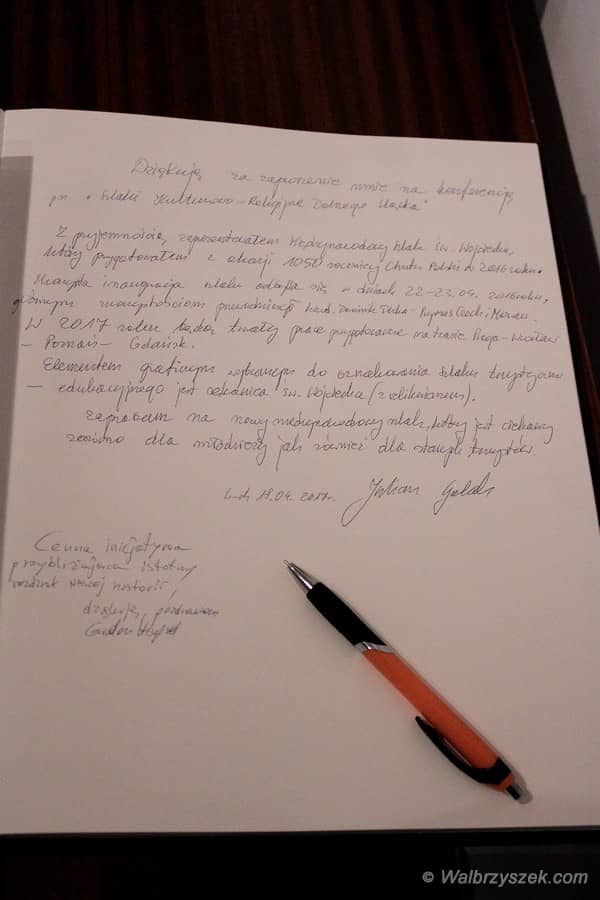 Dziękuję za zaproszenie mnie na konferencję
pn. "Szlaki Kulturowo-Religijne Dolnego Śląska"
Z przyjemnością zaprezentowałem Międzynarodowy Szlak Św. Wojciecha,
który przygotowałem z okazji 1050 rocznicy Chrztu Polski w 2016 roku.
inauguracja szlaku odbyła się w dniach 22-23.04.2016 roku,
głównym uroczystościom przewodniczył kard. Dominik Duka - Prymas Czech i Moraw.
W 2017 roku będą trwały prace przygotowawcze na trasie Praga-Wrocław
- Poznań - Gdańsk.
Elementem graficznym wybranym do oznakowania szlaku turystyczno
- edukacyjnego jest św. Wojciecha (z relikwiarzem).
Zapraszam na nowy międzynarodowy szlak, który jest ciekawy
zarówno dla młodzieży jak również dla starszych turystów.
18.04.2017r. Julian Golak
Cenna inicjatywa
przybliżająca istotny
naszej historii,
dziękuję, pozdrawiam
© Walbrzyszek.com